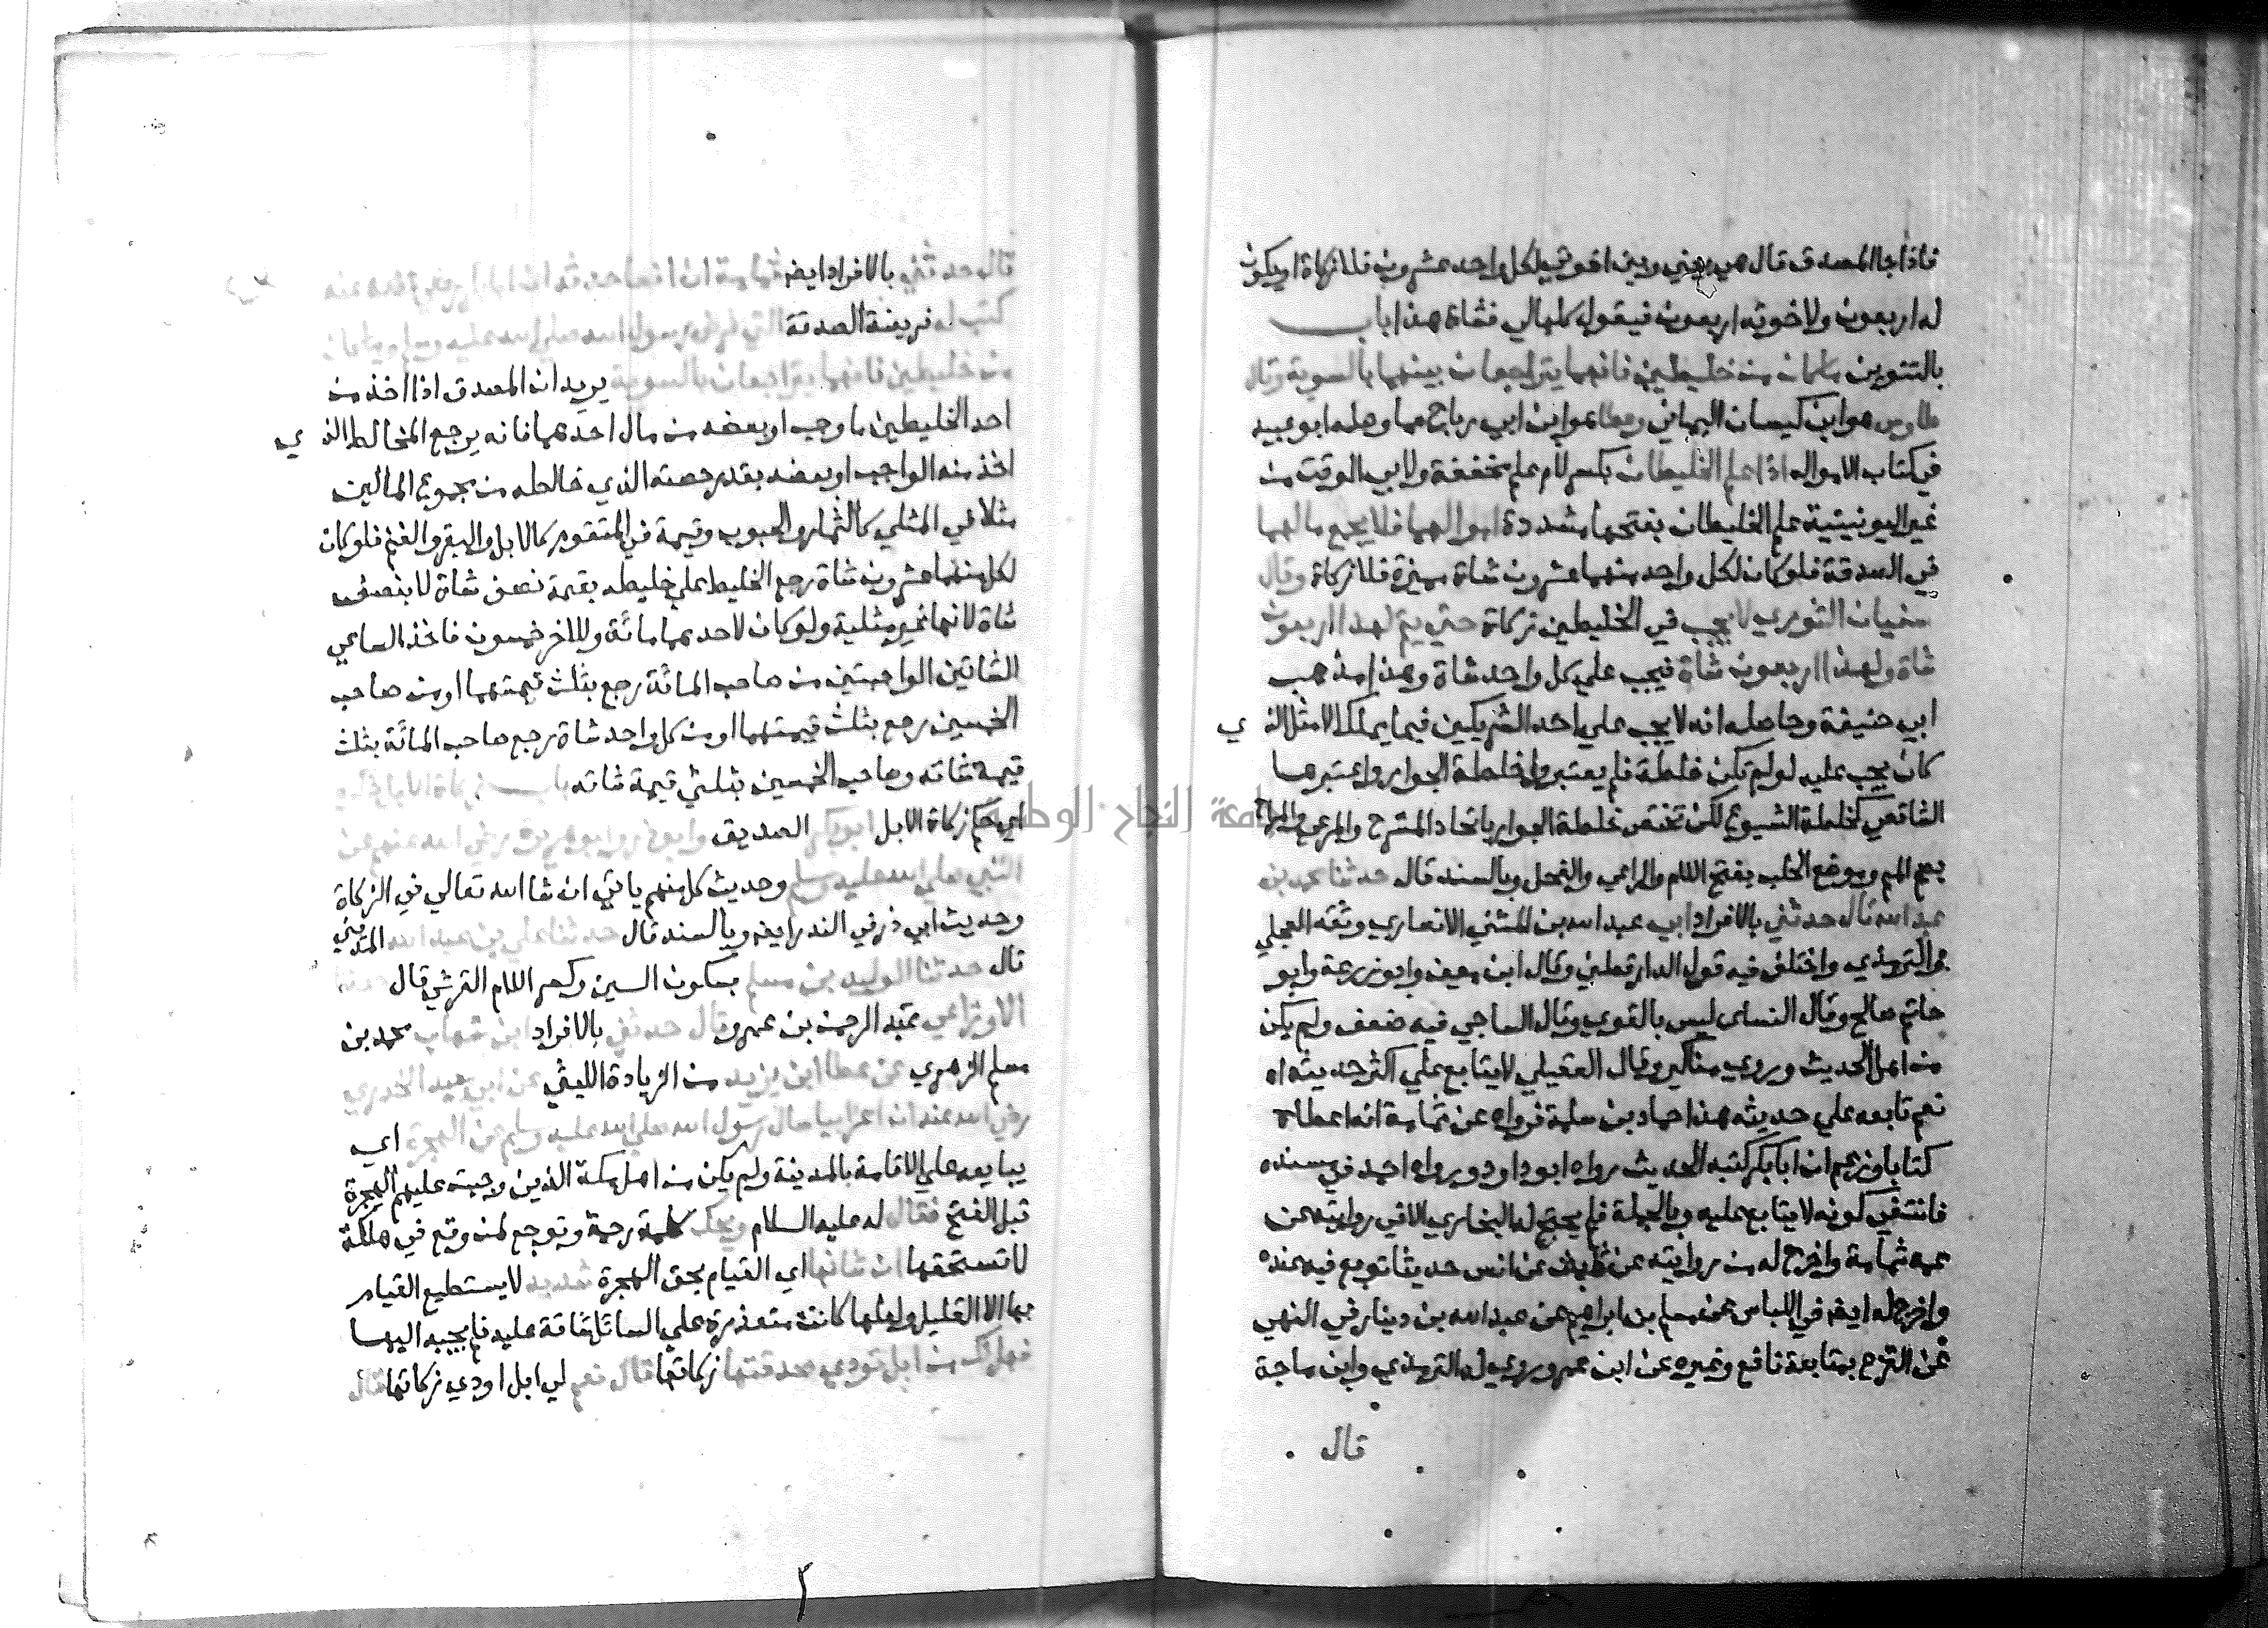 فاذا جا المصدق قال هي بيني وبين اخوتي لكل واحد عشرون فلا زكاة او يكون
له اربعون ولاخوته اربعون فيقول كلها لي فشاة هذا باب
بالتنوين ما كان من خليطين فانهما يتراجعان بينهما بالسوية وقال
طاوس هو ابن كيسان اليماني وعطا هو ابن ابي رباح مما وصله ابو عبيد
في كتاب الاموال اذا علم الخليطان بكسر لام علم مخففة ولابي الوقت من
غير اليونينية علم الخليطان بفتحها مشددة اموالهما فلا يجمع مالهما
في الصدقة فلو كان لكل واحد منهما عشرون شاة مميزة فلا زكاة وقال
سفيان الثوري لا يجب في الخليطين زكاة حتي يتم لهذا اربعون
شاة ولهذا اربعون شاة فيجب علي كل واحد شاة وهذا مذهب
ابي حنيفة وحاصله انه لا يجب علي احد الشريكين فيما يملك الا مثل الذي
كان يجب عليه لو لم تكن خلطة فلم يعتبروا خلطة الجوار واعتبرها
الشافعي كخلطة الشيوع لكن تختص خلطة الجوار باتحاد المشرح والمرعي والمراح
بضم الميم وموضع الحلب بفتح اللام والراعي والفحل وبالسند قال حدثنا محمد بن
عبد الله قال حدثني بالافراد ابي عبد الله بن المثني الانصاري وثقه العجلي
والترمذي واختلف فيه قول الدارقطني وقال ابن معين وابو زرعة وابو
حاتم صالح وقال النساى ليس بالقوي وقال الساجي فيه ضعف ولم يكن
من اهل الحديث وروي مناكير وقال العقيلي لا يتابع علي اكثر حديثه اه
نعم تابعه علي حديثه هذا حماد بن سلمة فرواه عن ثمامة انه اعطاه
كتابا وزعم ان ابا بكر كتبه الحديث رواه ابو داود ورواه احمد في مسنده
فانتفي كونه لا يتابع عليه وبالجملة فلم يحتج له البخاري الا في روايته عن
عمه ثمامة واخرج له من روايته عن ثابت عن انس حديثا توبع فيه عنده
واخرج له ايضا في اللباس عن مسلم بن ابراهيم عن عبد الله بن دينار في النهي
عن القزع بمتابعة نافع وغيره عن ابن عمر وروي له الترمذي وابن ماجة
قال
قال حدثني بالافراد ايضا ثمامة ان انسا حدثه ان ابا بكر رضي الله عنه
كتب له فريضة الصدقة التي فرض رسول الله صلي الله عليه وسلم وما كان
من خليطين فانهما يتراجعان بالسوية يريد ان المصدق اذا اخذ من
احد الخليطين ما وجب او بعضه من مال احدهما فانه يرجع المخالط الذي
اخذ منه الواجب او بعضه بقدر حصته الذي خالطه من مجموع المالين
مثلا في المثلي كالثمار والحبوب وقيمة في المتقوم كالابل والبقر والغنم فلو كان
لكل منهما عشرون شاة رجع الخليط علي خليطه بقيمة نصف شاة لا بنصف
شاة لانها غير مثلية ولو كان لاحدهما مائة وللاخر خمسون فاخذ الساعي
الشاتين الواجبتين من صاحب المائة رجع بثلث قيمتهما او من صاحب
الخمسين رجع بثلث قيمتهما او من كل واحد شاة رجع صاحب المائة بثلث
قيمة شاته وصاحب الخمسين بثلثي قيمة شاته باب زكاة الابل
اي حكم زكاة الابل ابو بكر الصديق وابو ذر وابو هريرة رضي الله عنهم عن
النبي صلي الله عليه وسلم وحديث كل منهم ياتي ان شا الله تعالي في الزكاة
وحديث ابي ذر في النذر ايضا وبالسند قال حدثنا علي بن عبد الله المديني
قال حدثنا الوليد بن مسلم بسكون السين وكسر اللام القرشي قال حدثنا
الاوزاعي عبد الرحمن بن عمرو قال حدثني بالافراد ابن شهاب محمد بن
مسلم الزهري عن عطا ابن يزيد من الزيادة الليثي عن ابي سعيد الخدري
رضي الله عنه ان اعرابيا سال رسول الله صلي الله عليه وسلم عن الهجرة اي
يبايعه علي الاقامة بالمدينة ولم يكن من اهل مكة الذين وجبت عليهم الهجرة
قبل الفتح فقال له عليه السلام ويحك كلمة رحمة وتوجع لمن وقع في هلكة
لا تستحقها ان شانها اي القيام بحق الهجرة شديد لا يستطيع القيام
بها الا القليل ولعلها كانت متعذرة علي السائل شاقة عليه فلم يجبه اليها
فهل لك من ابل تودي صدقتها زكاتها قال نعم لي ابل اودي زكاتها قال
جامعة النجاح الوطنية